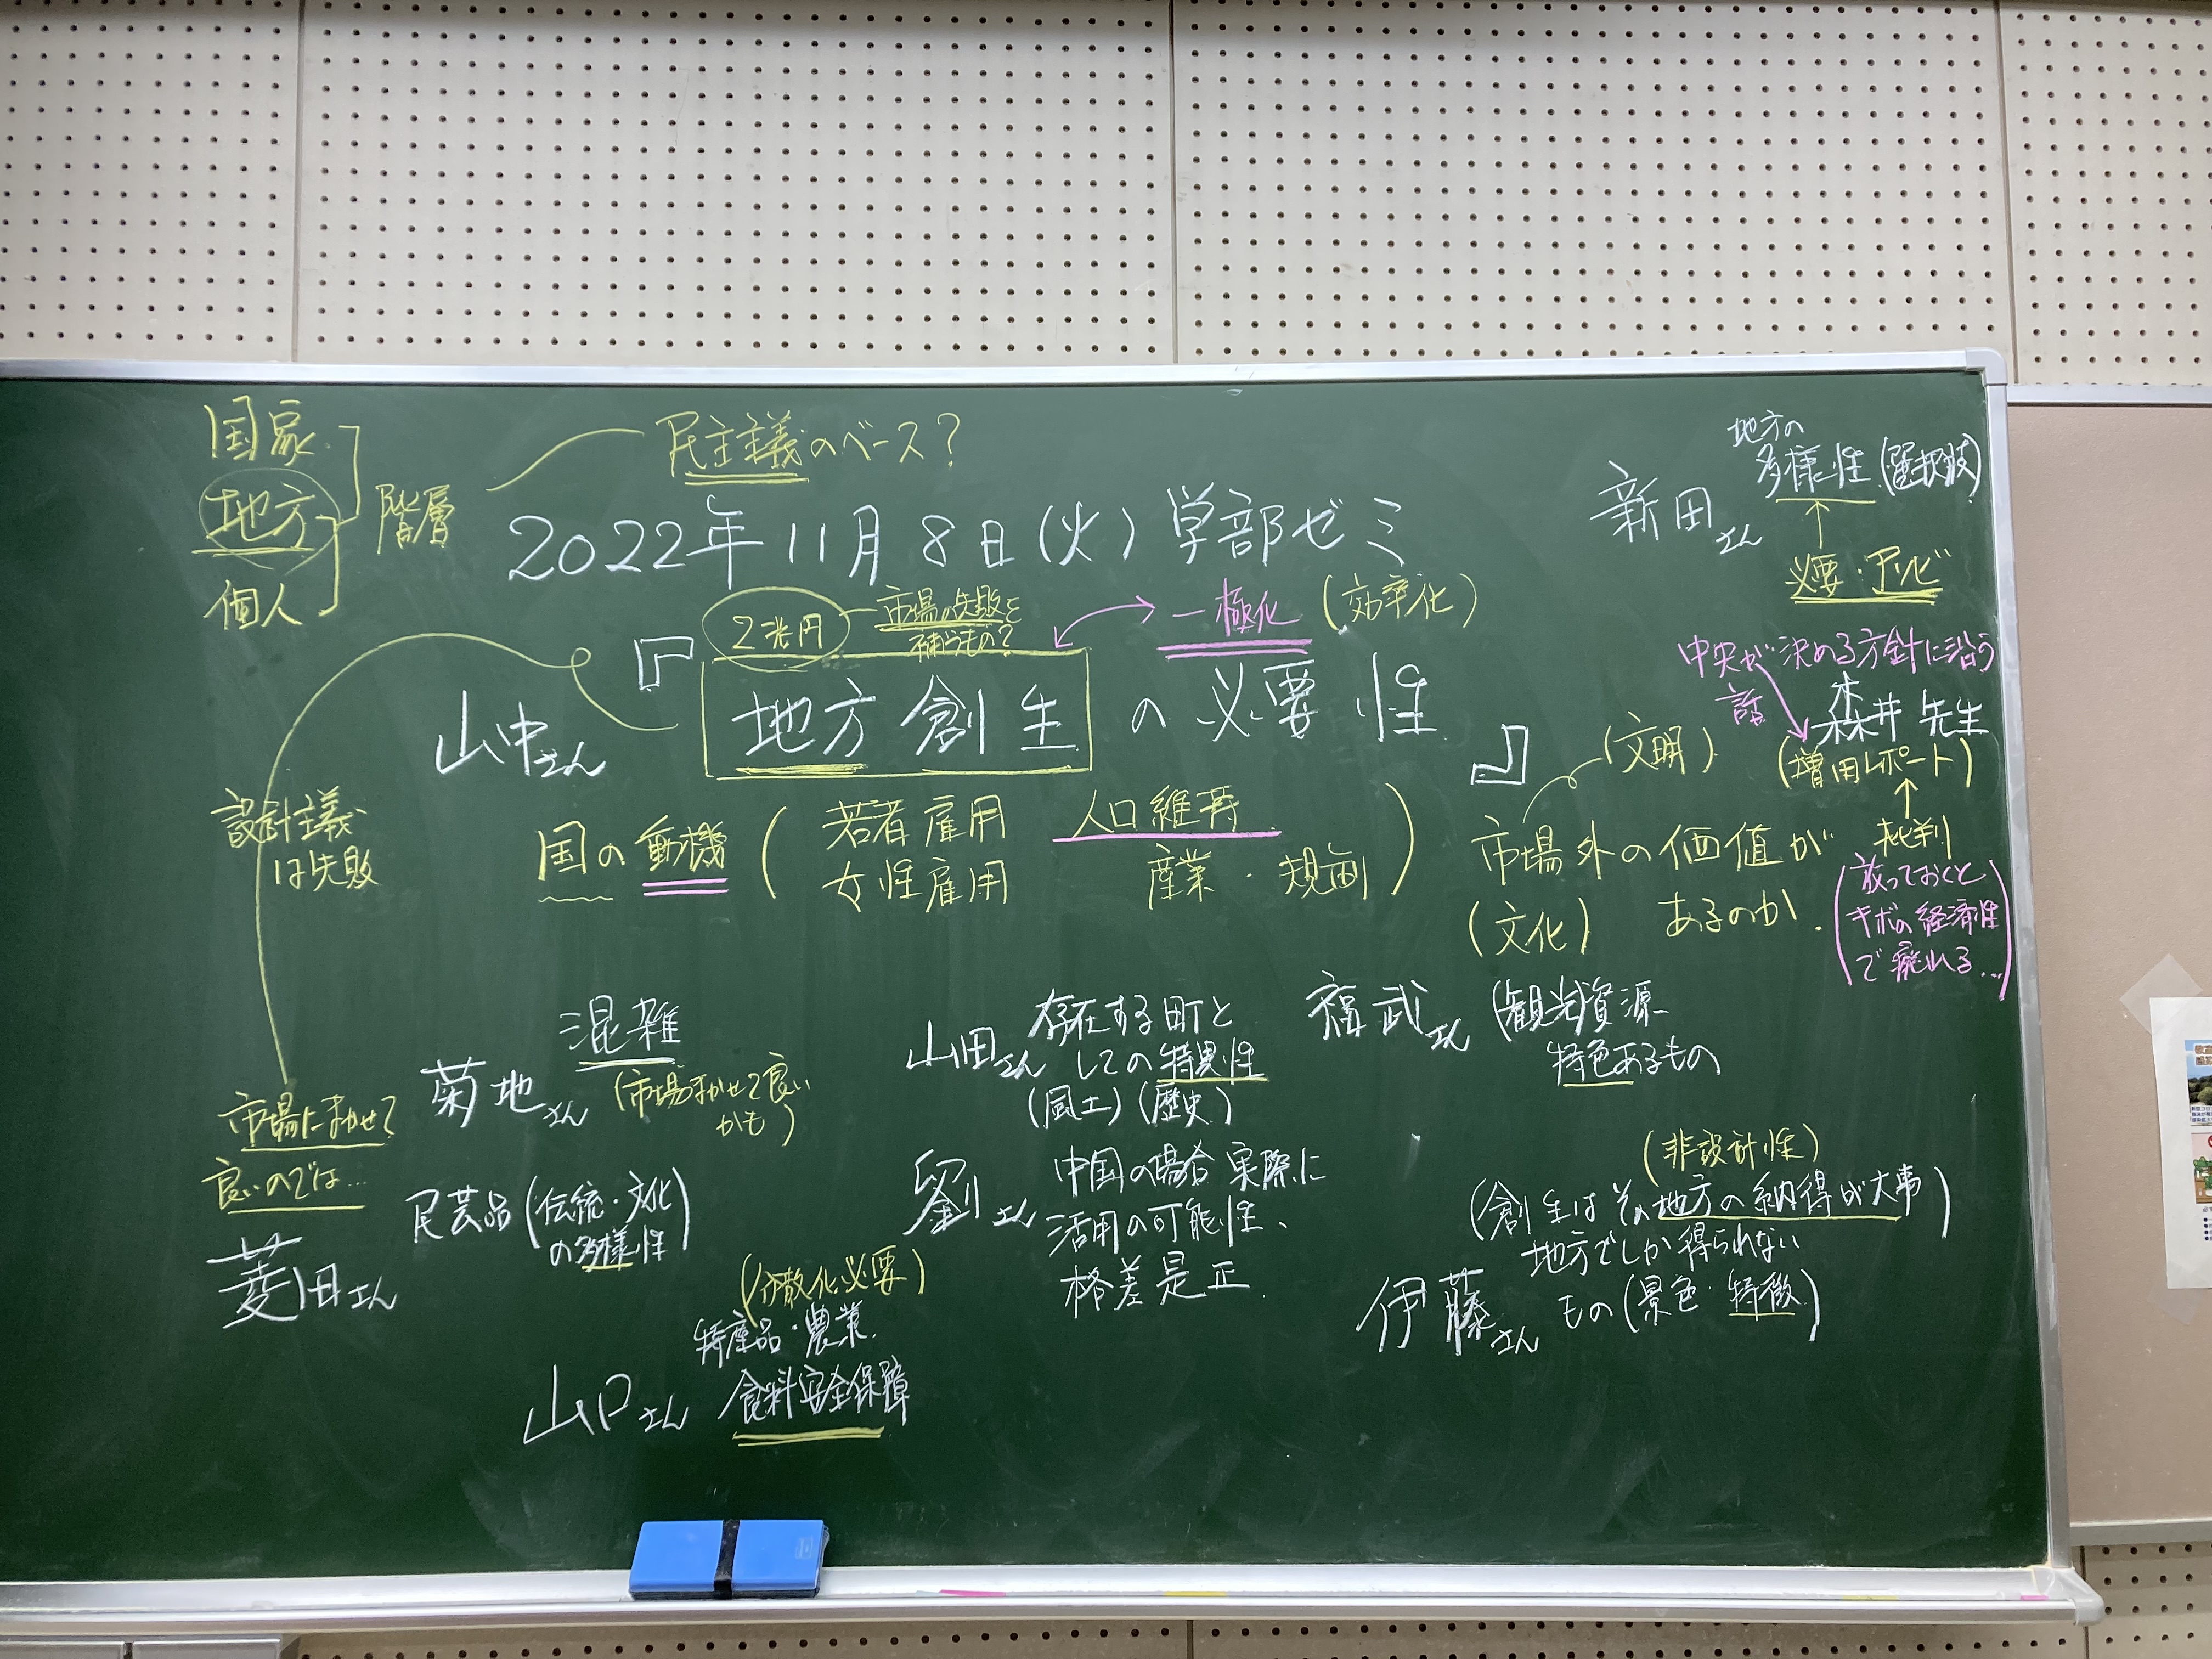 国家
地方
個人
階層
民主主義のベース?
2022年11月8日(火)学部ゼミ
2兆円
市場の失敗を
補うもの?
一極化
(効率化)
『地方創生の必要性』
山中さん
地方の
多様性(選択肢)
新田さん
必要・アリビ
中央が決める方針に沿う
話
森井先生
(増田レポート)
批判
(放っておくと
キボの経済性
で廃れる...)
設計主義
は失敗
国の動機
(若者雇用 人口維持
女性雇用 産業・規画)
(文明)
市場外の価値が
あるのか.
(文化)
混雑
菊地さん
(市場まかせで良い
かも)
山田さん
存在する町と
しての特異性
(風土)(歴史)
福武さん
(観光)資源
特色あるもの
市場にまかせて
良いのでは...
菱田さん
民芸品(伝統・文化
の多様性)
劉さん
中国の場合実際に
活用の可能性、
格差是正
(非設計性)
(創生はその地方の納得が大事)
地方でしか得られない
もの(景色・特徴)
伊藤さん
(分散化必要)
特産品・農業
食料安全保障
山口さん